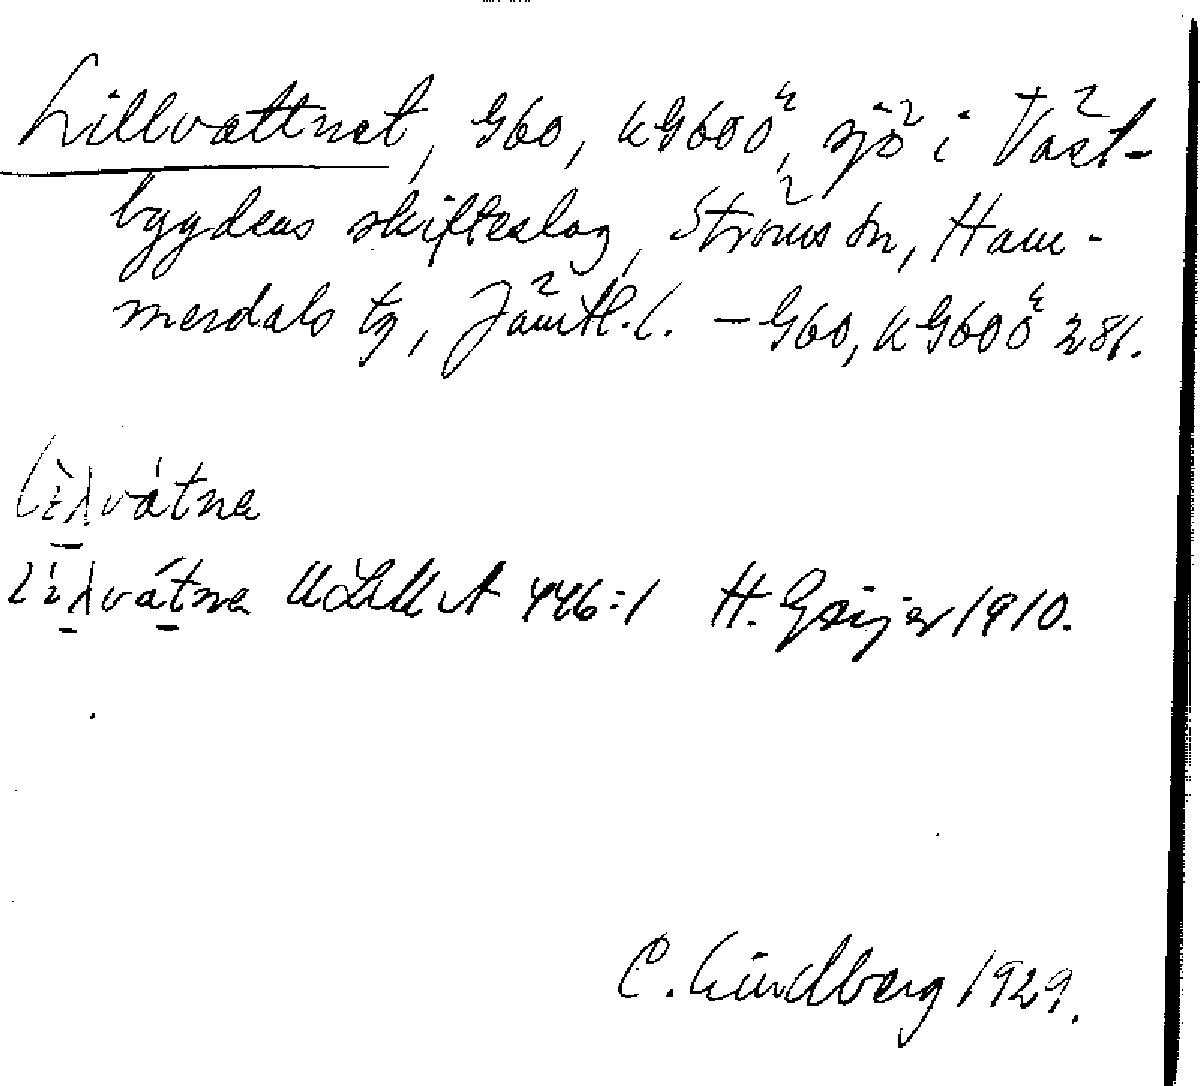 Lillvattnet, G60, KG60Ö, sjö i Väst-
bygdens skifteslag, Ströms sn, Ham-
merdals tg, Jämtl. l. – G60, KG60Ö 281.
ULMA 446:1 H. Geijer 1910.
C. Lindberg 1929.